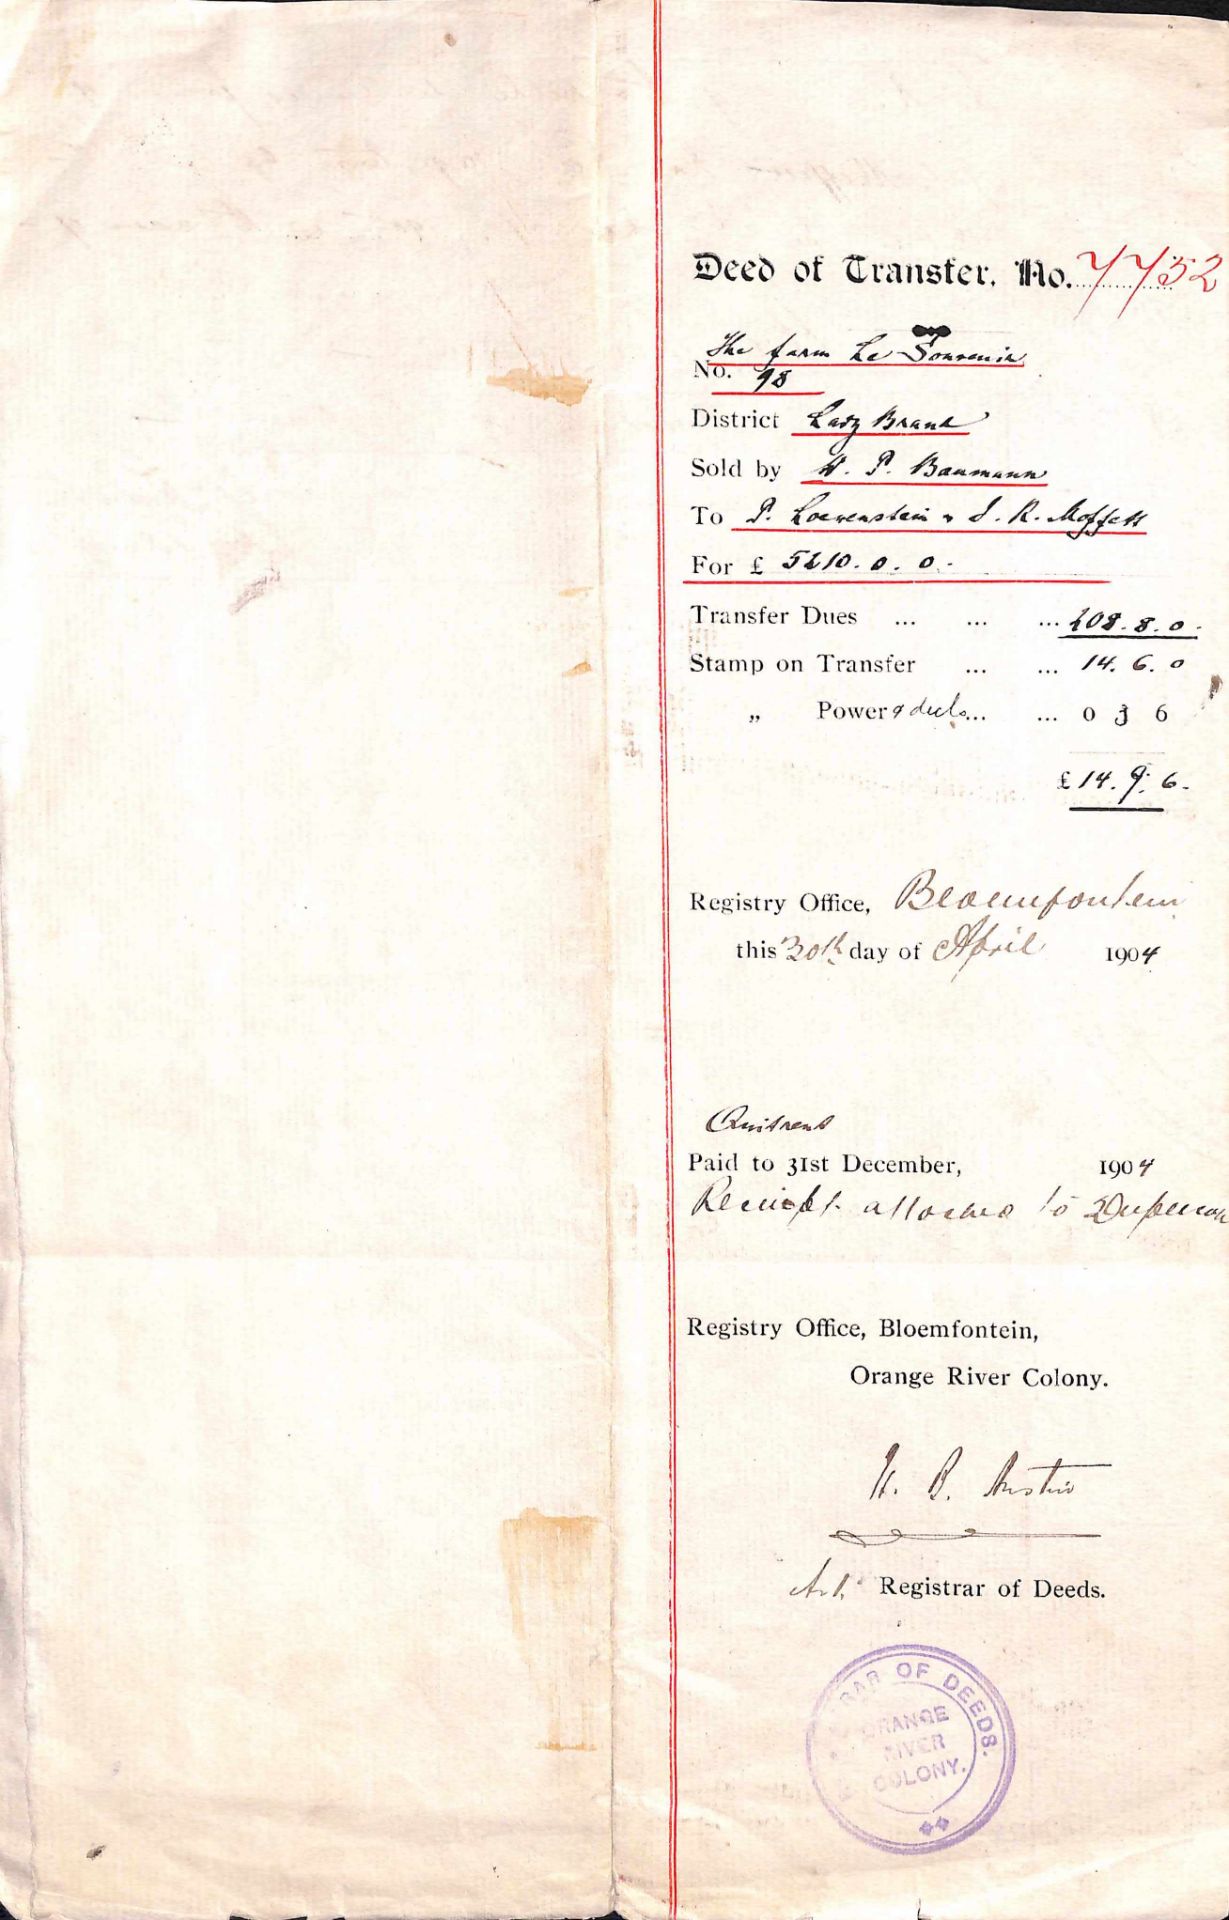 Deed of Transfer, No. 7752
The farm Le Souvenir
No. 98
District Lady Brand
Sold by H. P. Baumann
To P. Loewenstein & J. R. Moffett
For £ 5210. 0. 0.-
Transfer Dues ... ... ... 208. 8. 0.
Stamp on Transfer ... ... 14. 6. 0
„ Power & decl. ... ... 0 3 6
£ 14. 9. 6.
Registry Office, Bloemfontein
this 30th day of April 1904
Quitrent
Paid to 31st December, 1904
Receipt attached to
Registry Office, Bloemfontein,
Orange River Colony.
H. B. Austin
Act. Registrar of Deeds.
REGISTRAR OF DEEDS.
ORANGE
RIVER
COLONY.